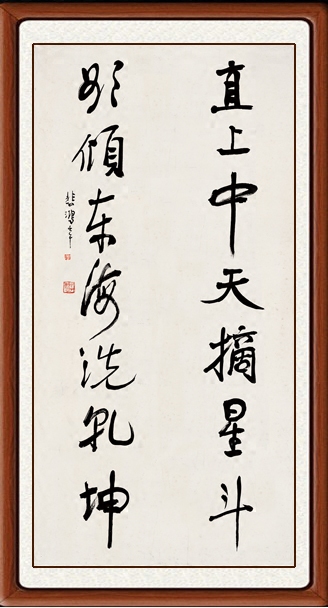 直上中天摘星斗
欲傾東海洗乾坤
悲鴻